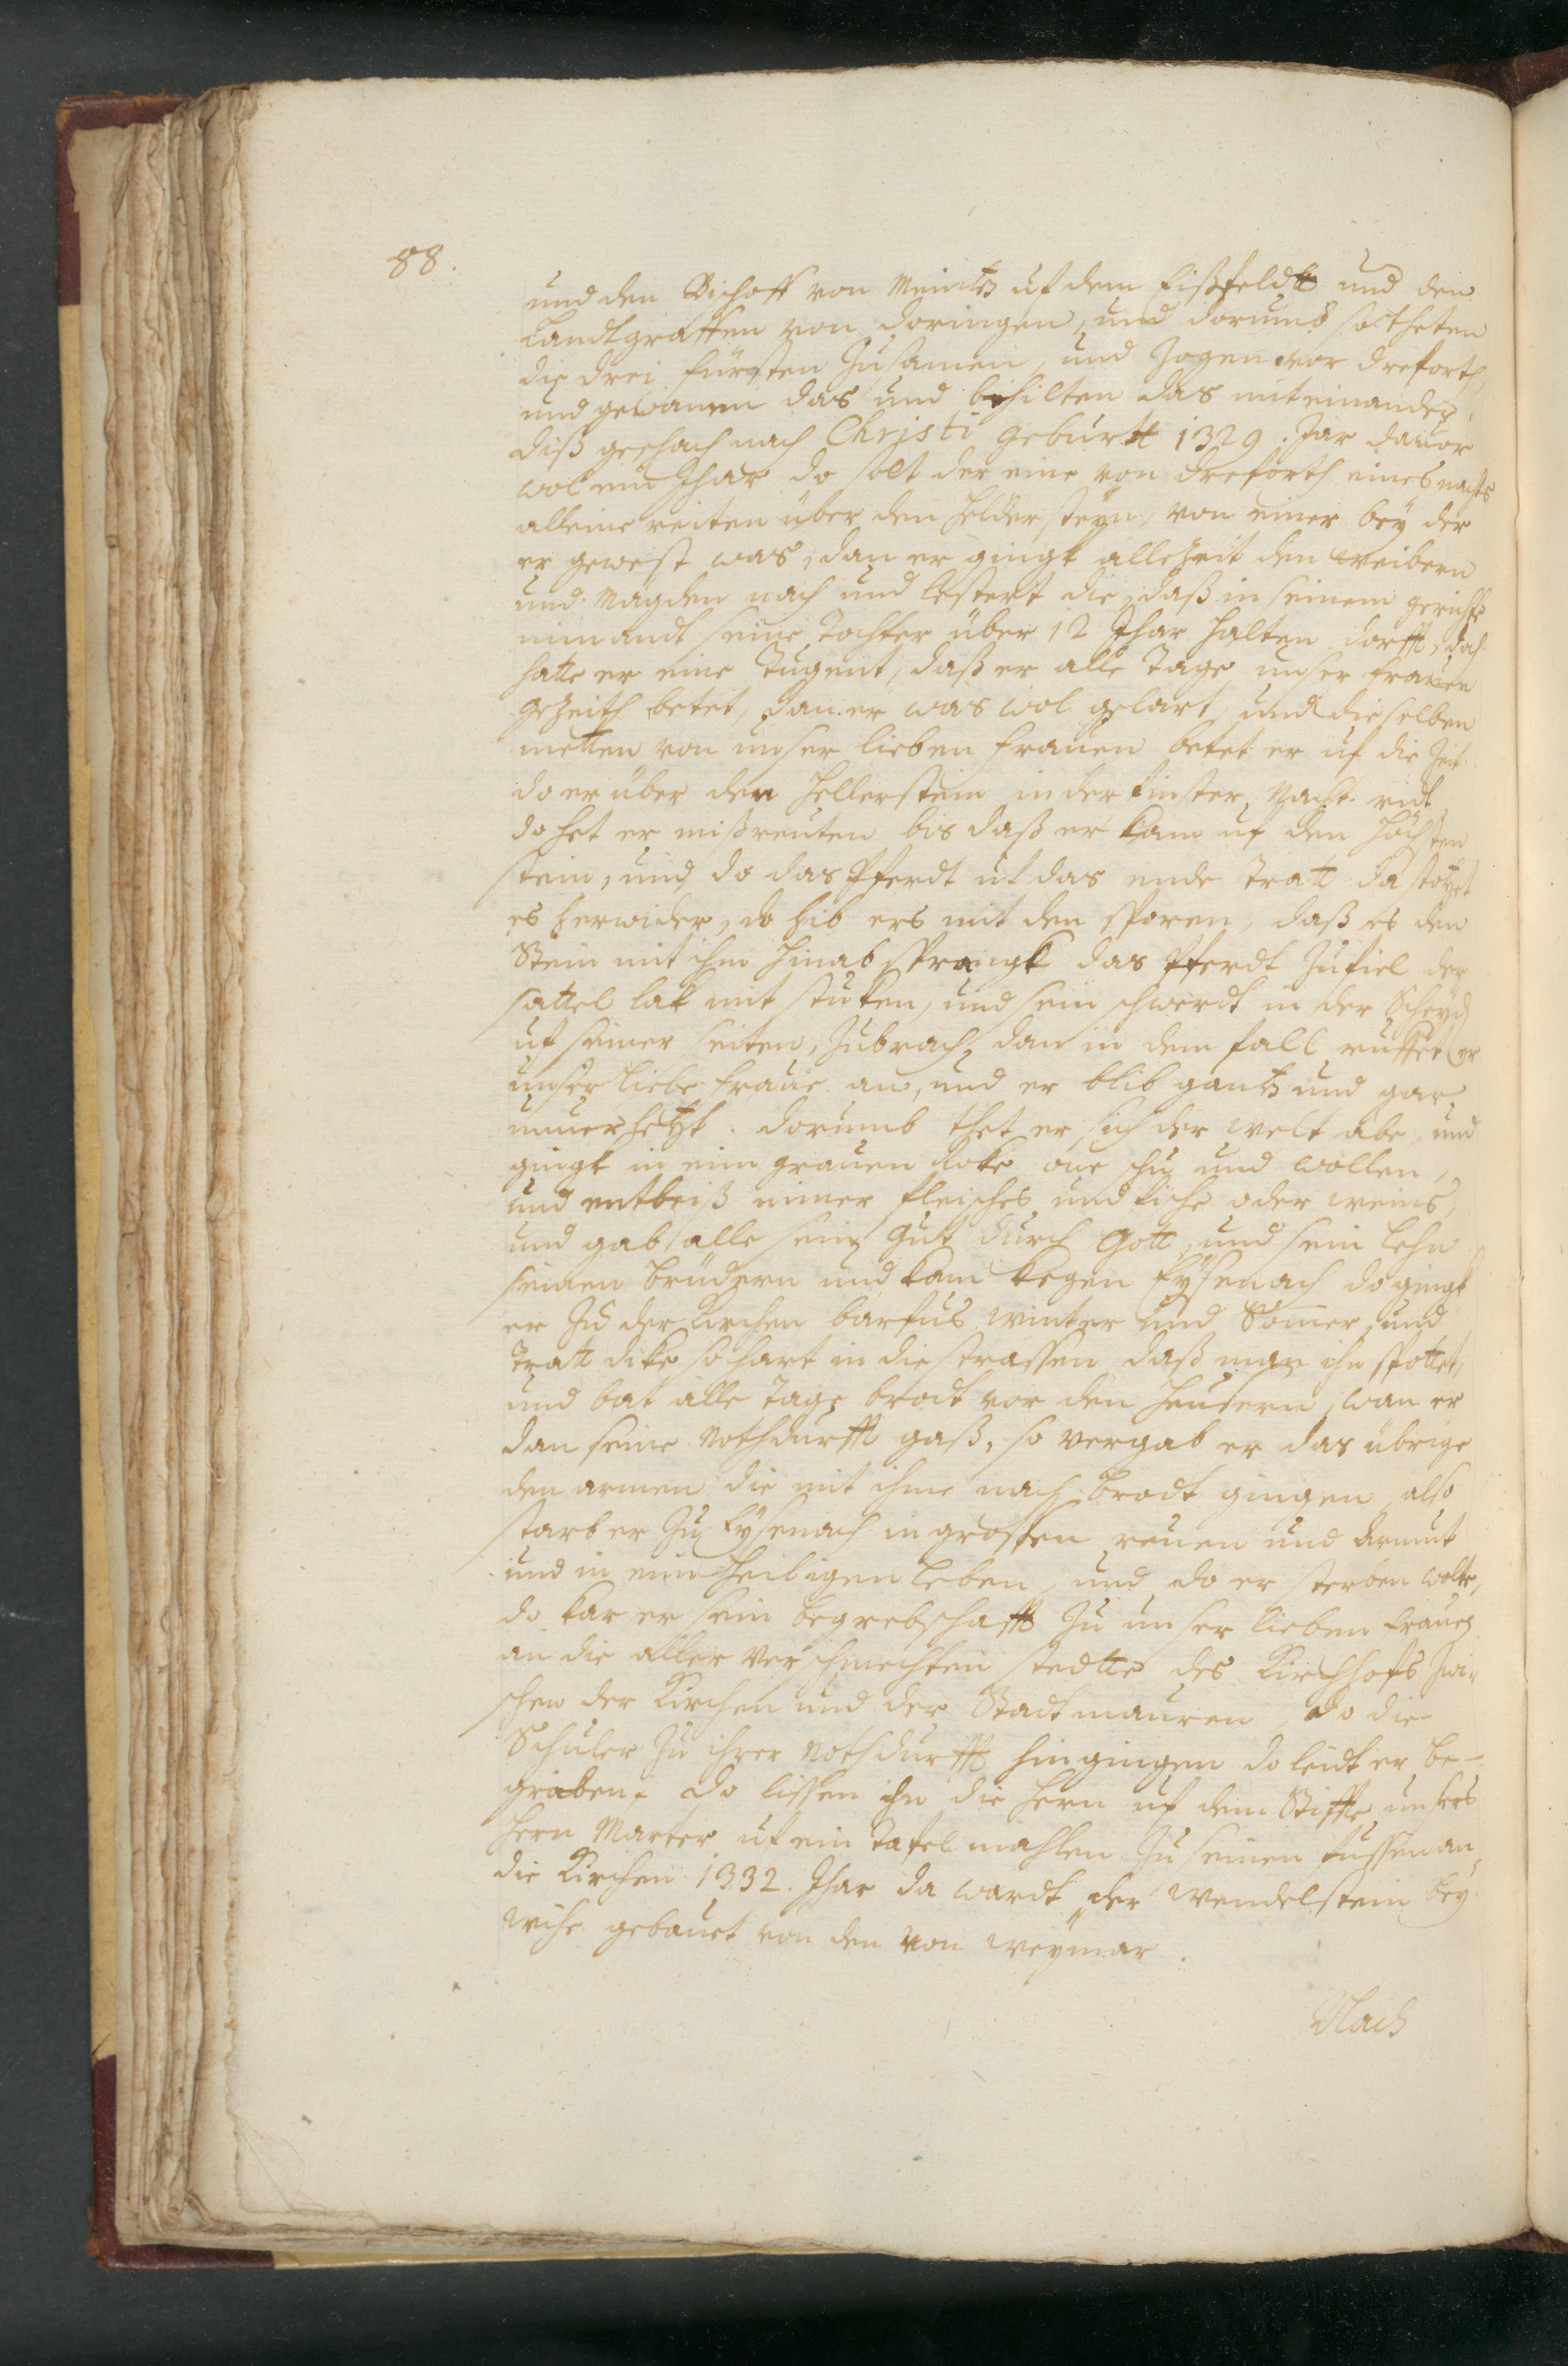 88.
und den Bischoff von Meintz uf dem Eißfeldt und den
Landtgraffen von Doringen, und dorumb so theten
die drei fürsten zusamen, und zogen vor Dreforth,
und gewannen das und behilten das miteinander.
diß geschach nach Christi geburtt 1329. Jar dauor
wol ein Jhar do solt der eine von Dreforth eines nachts
alleine reiten über den Heldersteyn, von einer bey der
er gewest was, dan er gingk allezeit den weibern
und Mägden nach und lestert die, daß in seinem gerichte
nimandt seine Tochter über 12 Jhar halten dorfft, doch
hatte er eine Tugent, daß er alle Tage unser frauen
gezeith betet, dan er was wol gelart, und dieselben
metten von unser lieben frauen betet er uf die Zeit
do er über den Hellerstein in der finster Nacht reit
do het er mißreuten bis daß er kam uf den höchsten
stein, und do das Pferdt uf das ende tratt da stotzet
es herwider, do hib ers mit den sporen, daß es den
Stein mit ihm hinab sprangk das Pferdt zufiel der
sattel lak mit stuken, und sein schwerdt in der Scheyd
uf seiner seiten, zubrach, dan in dem fall ruffet er
unser liebe fraue an, und er blib gantz und gar
unuerhetzt. dorumb thet er sich der welt abe, und
gingk in eim grauen Roke one schu und wollen,
und entbeiß nimer fleisches und fische oder weins,
und gab alle sein Gut durch Gott, und sein Lehn
seinen Brüdern und kam kegen Eysenach do gingk
er zu der Kirchen barfus winter und Somer, und
tratt dike so hart in die strassen daß man ihn spottet,
und bat alle Tage brodt vor den Heusern, wan er
dan seine Nothdurfft gaß, so vergab er das übrige
den armen die mit ihme nach Brodt gingen, also
starb er zu Eysenach in grossen reuen und Armut
und in eim Heiligen Leben, und do er sterben wolte,
do kar er sein begrebschafft zu unser lieben frauen
an die aller verschmechten stedtte des Kirchhofs zwi-
schen der Kirchen und der Stadtmauren, do die
Schuler zu ihrer Nothdurfft hingingen do leidt er be-
graben. do lissen ihn die Hern uf dem Stiffte unsers
Hern Marter uf ein Tafel mahlen zu seinen fussen an
die Kirchen 1332. Jhar da wardt der Wendelstein bey
Wihe gebauet von den von Weymar.
Nach